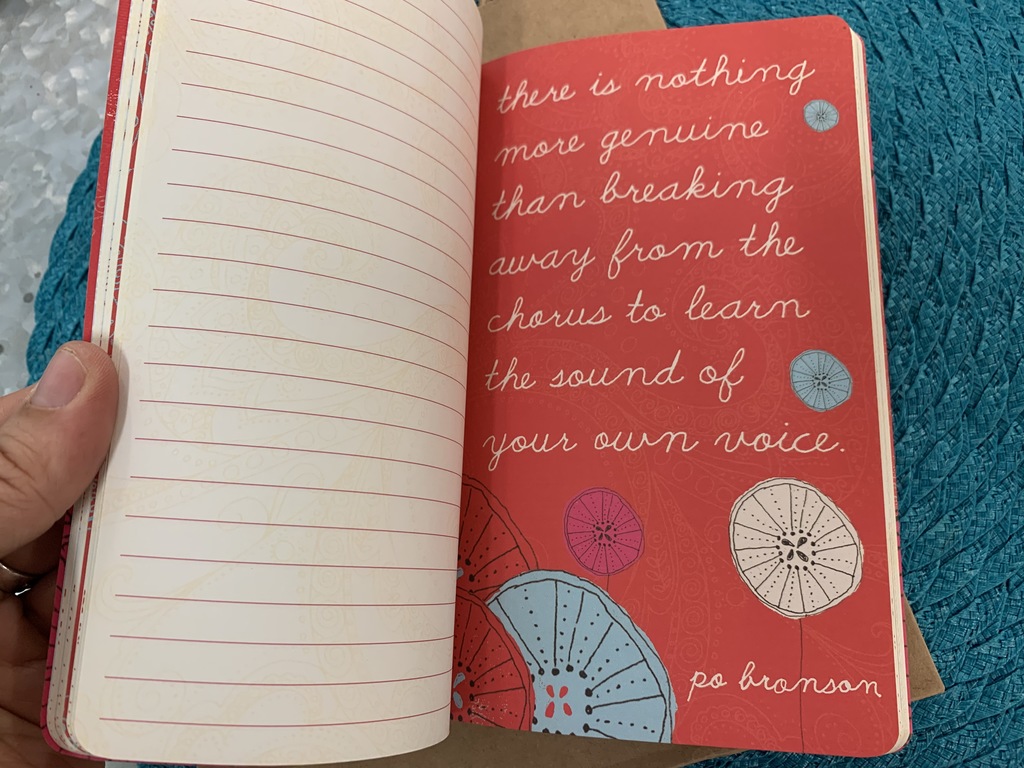 there is nothing
more genuine
than breaking
away from the
chorus to learn
the sound of
your own voice.
po bronson